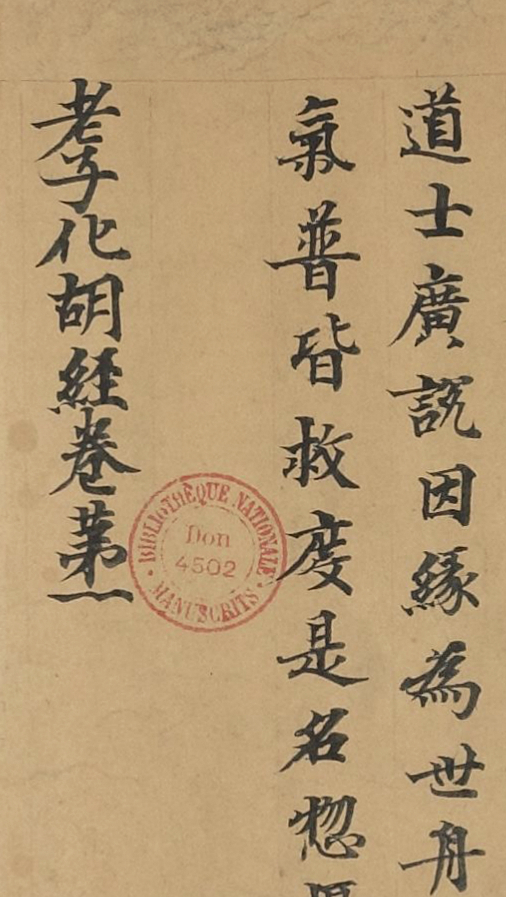 道士廣説因緣為世舟
氣普皆救度是名惣
老子化胡經卷第一
BIBLIOTHÈQUE NATIONALE
Don
4502
MANUSCRITS